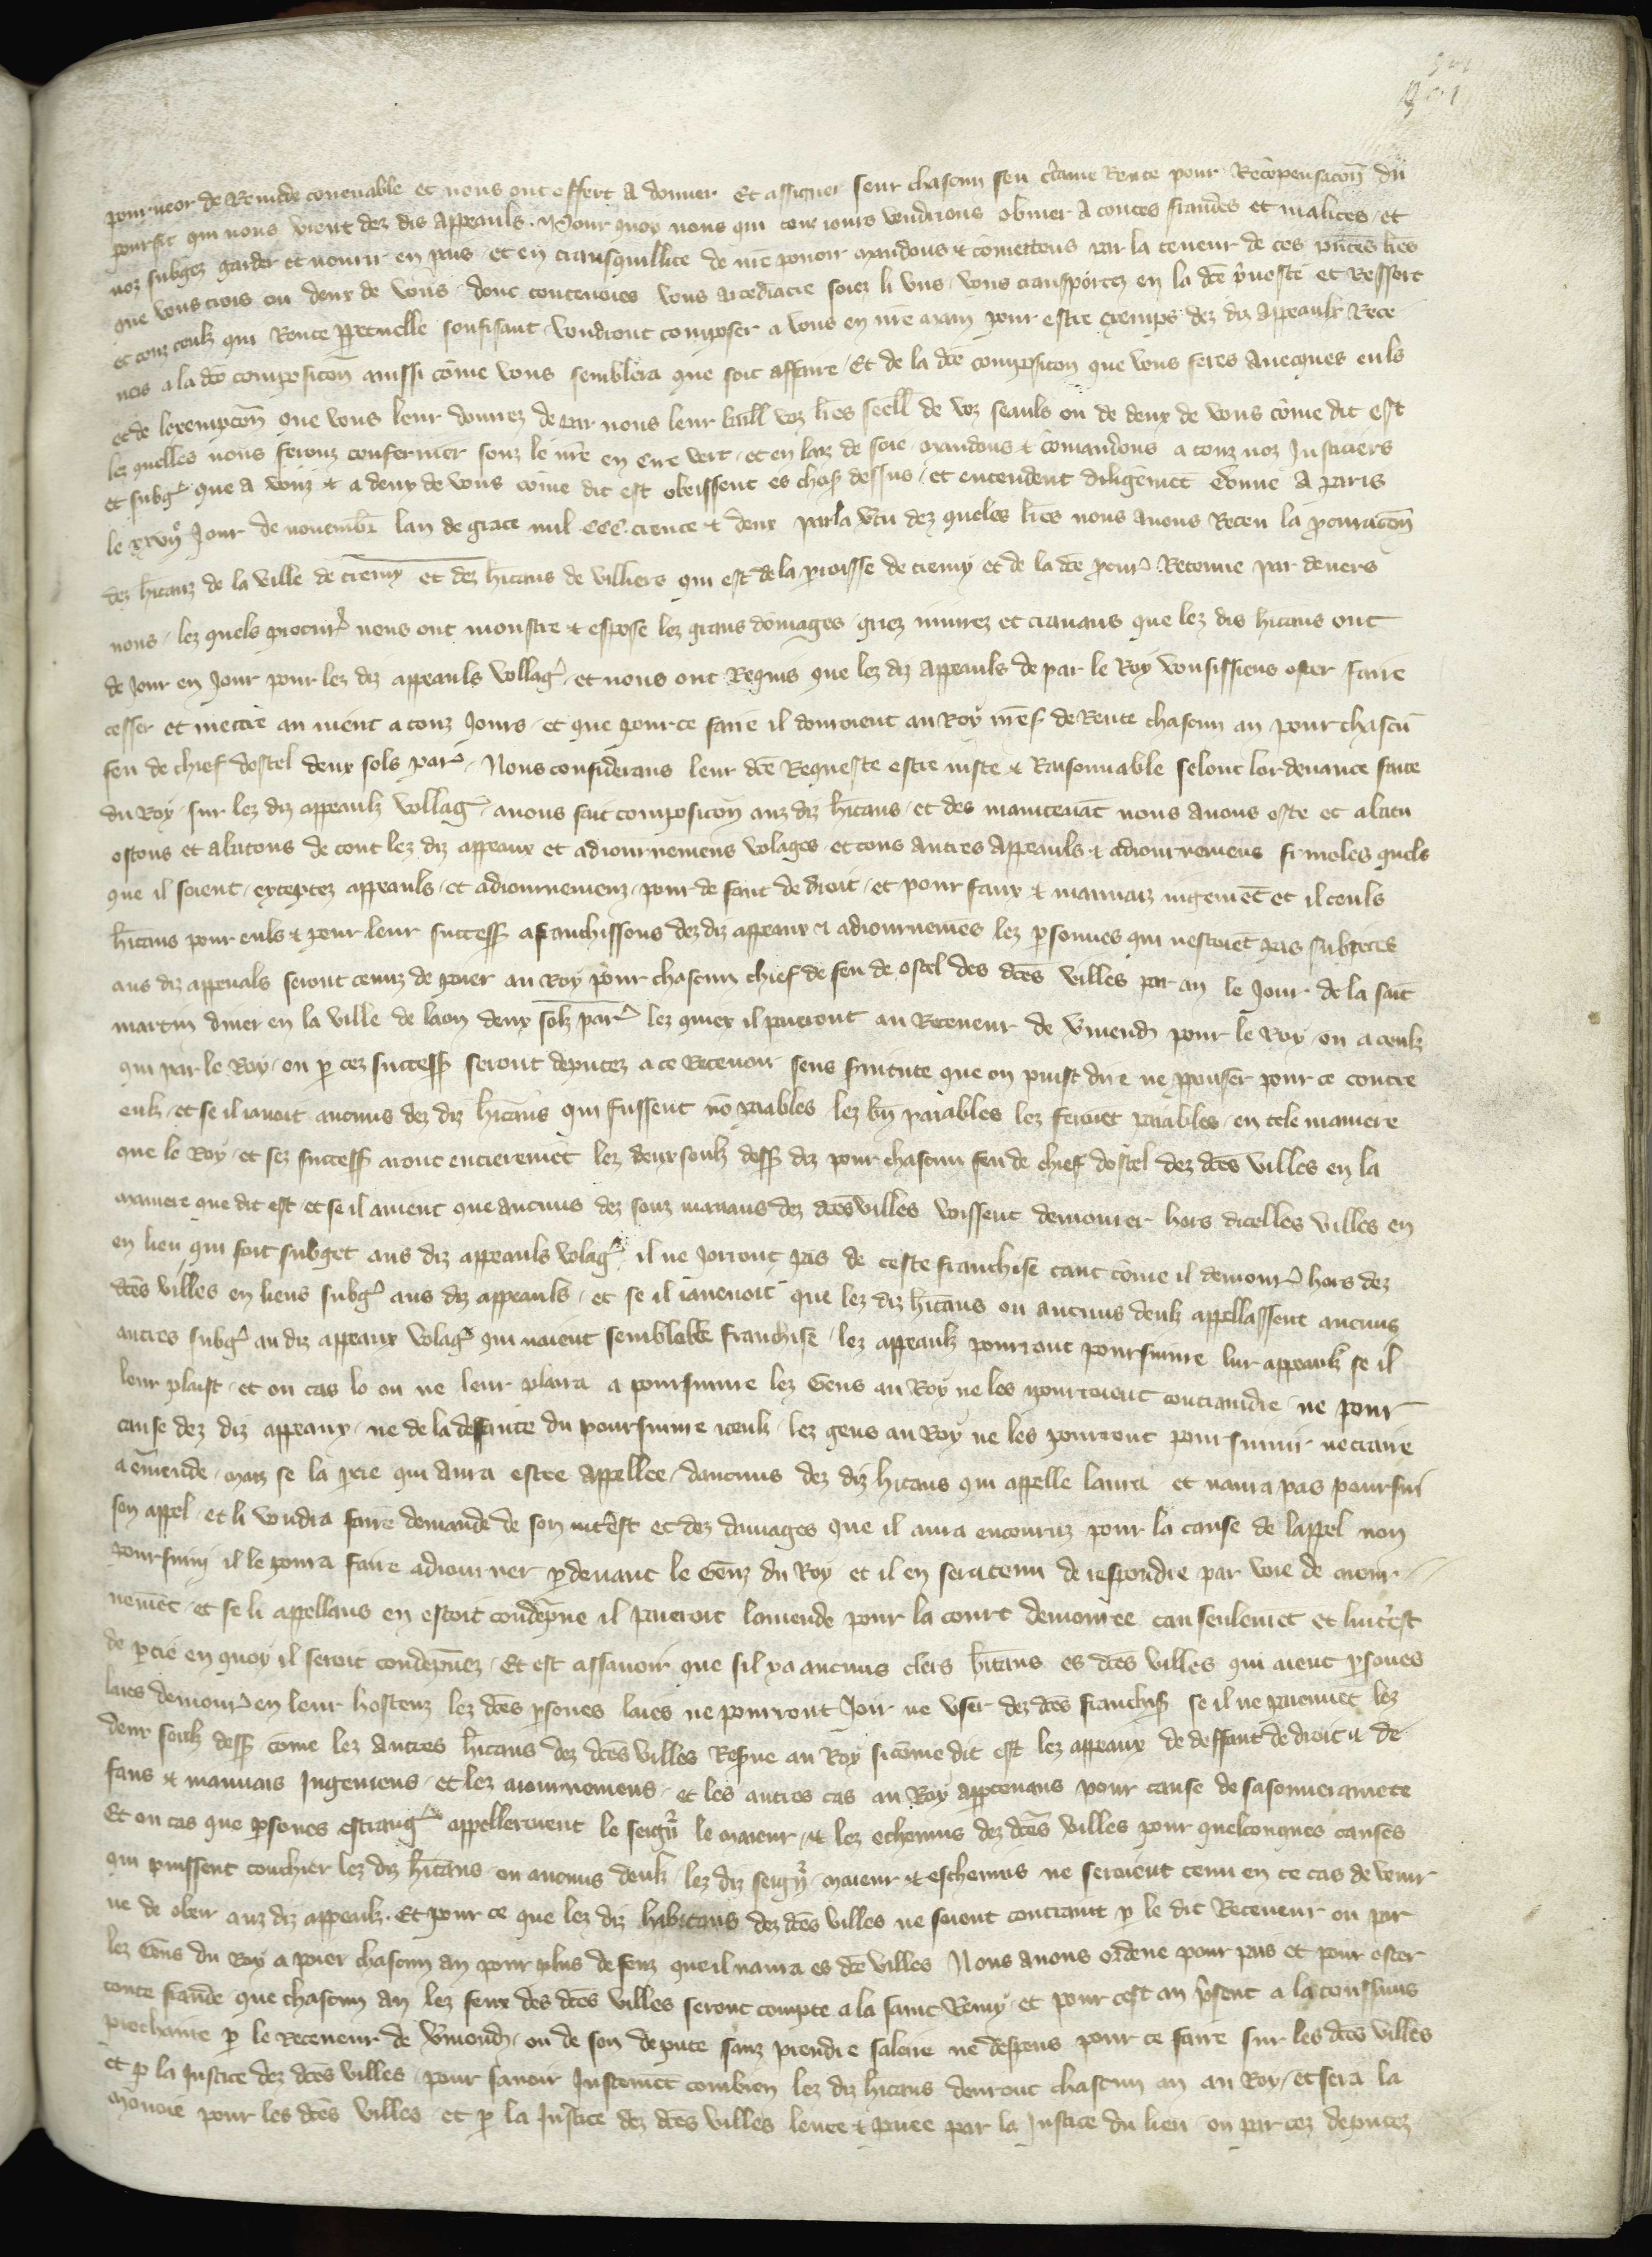 pourveor de Remede convenable et nous ont offert a donner et assigner seur chascun feu c̃taine Rente pour Recõpensacoñ du
pourfit qui nous vient dez dis appeauls. Pour quoy nous qui touz iours vendrions obvier a toutes fraudes et malices / et
noz subgez garder et nourir en pais / et en transquillite de nr̃e pouoir mandons & cõmettons par la teneur de ces pñtes lr̃es
que vous trois ou deux de vous donc vous arcediacre soiez li uns / vous transportez en la dc̃e p̃voste et Ressort
et touz ceulz qui Rente ppetuelle souffisant voudront composer a vous en nr̃e nom pour estre exemps dez diz appeaulx Rece
vés a la dc̃e composicoñ aussi cõme vous semblera que soit affaire / Et de la dc̃e composicoñ que vous feres avecques euls
et de lexempcoñ que vous leur donrez de par nous leur baill voz lr̃es seell de voz seauls ou de deux de vous cõme dit est
lez quelles nous ferons confermer souz le nr̃e en cire vert / et en laz de soie / mandons & cõmandons a touz noz Justiciers
et subg̃ que a vous & a deux de vous cõme dit est obeissent es chos̃ dessus / et entendent diligẽmet Donne a paris
le xxvijᵉ Jour de novembr̃ lan de grace mil ccc. trente & deux par la v̾tu dez queles lr̃es nous avons Receu la p̃curacoñ
dez hĩtanz de la ville de Cremy et dez hĩtans de villiers qui est de la p̃roisse de cremy et de la dc̃e p̃cur̃ Retenue par devers
nous / lez quels procur̃ nous ont monstre & expose lez grans dõmages griez iniurez et travaus que lez dis hĩtans ont
de Jour en Jour pour lez diz appeauls vollag̃ / et nous ont Requis que lez diz appeauls de par le Roy vousissiens oster faire
cesser et mettre au nient a touz Jours / et que pour ce faire il donroient au Roy nr̃es̃ de Rente chascun an pour chascũ
feu de chief dostel deux sols par̃ / Nous considerans leur dc̃e Requeste estre iuste & Raisonnable selonc lordenance faite
du Roy / sur lez diz appeaulz vollag̃ / avons fait composicoñ aus diz hĩtans / et des maintenãt nous avons oste et abatu
ostons et abatons de tout lez diz appeaux et adiournemens volages / et tous autres appeauls & adiournemens frivoles quels
que il soient / exceptez appeauls / et adiournemenz / pour de faut de droit / et pour faux & mauvais iugemẽt et il ceuls
hĩtans pour euls & pour leur success̃ afranchissons dez diz appeaux & adiournemẽs lez p̃sonnes qui nestoiẽt pas subiectes
aus diz appeuals seront tenuz de paier au Roy pour chascun chief de feu de ostel des dc̃es villes par an le Jour de la sait
martin diver en la ville de laon deux solz par̃ lez quiex il paieront au Receveur de v̾mend̃ pour le Roy / ou a ceulz
qui par le Roy / ou p̃ cez success̃ seront deputez a ce Recevoir sens s̃vitute que on puist dire ne pp̃ouser pour ce contre
eulz / et se il iavoit aucuns dez diz hĩtans qui fussent nõ paiables / lez biñ paiables lez feroiẽt paiables / en tele maniere
que le Roy / et sez success̃ aront entieremẽt lez deux soulz dess̃ diz pour chascun feu de chief dostel dez dc̃es villes en la
maniere que dit est / et se il avient que aucuns dez souz manans dez dc̃es villes voissent demourer hors dicelles villes en
en lieu qui soit subget aus diz appeauls volag̃ / il ne Jorront pas de ceste franchise tant cõme il demour̃ hors dez
dc̃es villes en lieus subg̃ aus diz appeauls / et se il iavenoit que lez diz hĩtans ou aucuns deulz appellassent aucuns
autres subg̃ au diz appeaux volag̃ qui naient semblable franchise / lez appeaulz pourront poursuivre lur appeaulz se il
leur plaist / et ou cas lo ou ne leur plaira a poursuivre lez Gens au Roy ne les pourroient contraindre ne pour
cause dez diz appeaux / ne de la defaute du poursuivre iceulz / lez gens au Roy ne les pourront poursuivir ne traire
a emende / maiz se la p̃tie qui aura estee appellee / daucuns dez diz hĩtans qui appelle laura et naura pas poursui
son appel / et li voudra faire demande de son intest et dez damages que il aura encouruz pour la cause de lappel non
poursuiui il le poura faire adiourner p̃ devant le Gens du Roy et il en sera tenu de respondre par voie de aiour
nemẽt / et se li appellans en estoit condẽpne il paieroit lamende pour la court demouree tan seulemẽt et lintest
de p̃tie en quoy il seroit condẽpnez / Et est assavoir que sil ya aucuns clers hĩtans es dc̃es villes qui aient p̃sones
laies demour̃ en leur hostenz lez dc̃es p̃sones laies ne pourront Joir ne user dez dc̃es franchis̃ se il ne paiennẽt lez
deux soulz dess̃ cõme lez autres hĩtans dez dc̃es villes Res̃ve au Roy si cõme dit est lez appeaux de deffaut de droit & de
faus & mauvais Jugemens / et lez aiournemens / et les autres cas au Roy appertenans pour cause de sa souveraineté
Et ou cas que p̃sones estrang̃ appelleroient le seign̾ le maieur / & lez echevins dez dc̃es villes pour quelconques causes
qui puissent touchier lez diz hĩtans / ou aucuns deulz / lez diz seign̾ / maieur & eschevins ne seroient tenu en ce cas de venir
ne de obeir auz diz appeaulz. Et pour ce que lez diz habitans dez dc̃es villes ne soient contraint p̃ le dit Receveur ou par
lez Gens du Roy a paier chascun an pour plus de feuz que il naura es dc̃e villes Nous avons ordene pour pais et pour oster
toute fraude que chascun an lez feux des dc̃es villes seront compte a la saint Remy / et pour cest an p̃sent a la toussains
prochaine p̃ le Receveur de v̾mend̃ / ou de son depute sanz prendre saleire ne despens pour ce faire sur les dc̃es villes
et p̃ la Justice dez dc̃es villes / pour savoir Justemẽt combien lez diz hĩtans devront chascun an au Roy / et sera la
mõnoie pour les dc̃es villes / et p̃ la Justice dez dc̃es villes levee & paiee par la Justice du lieu ou par cez deputez